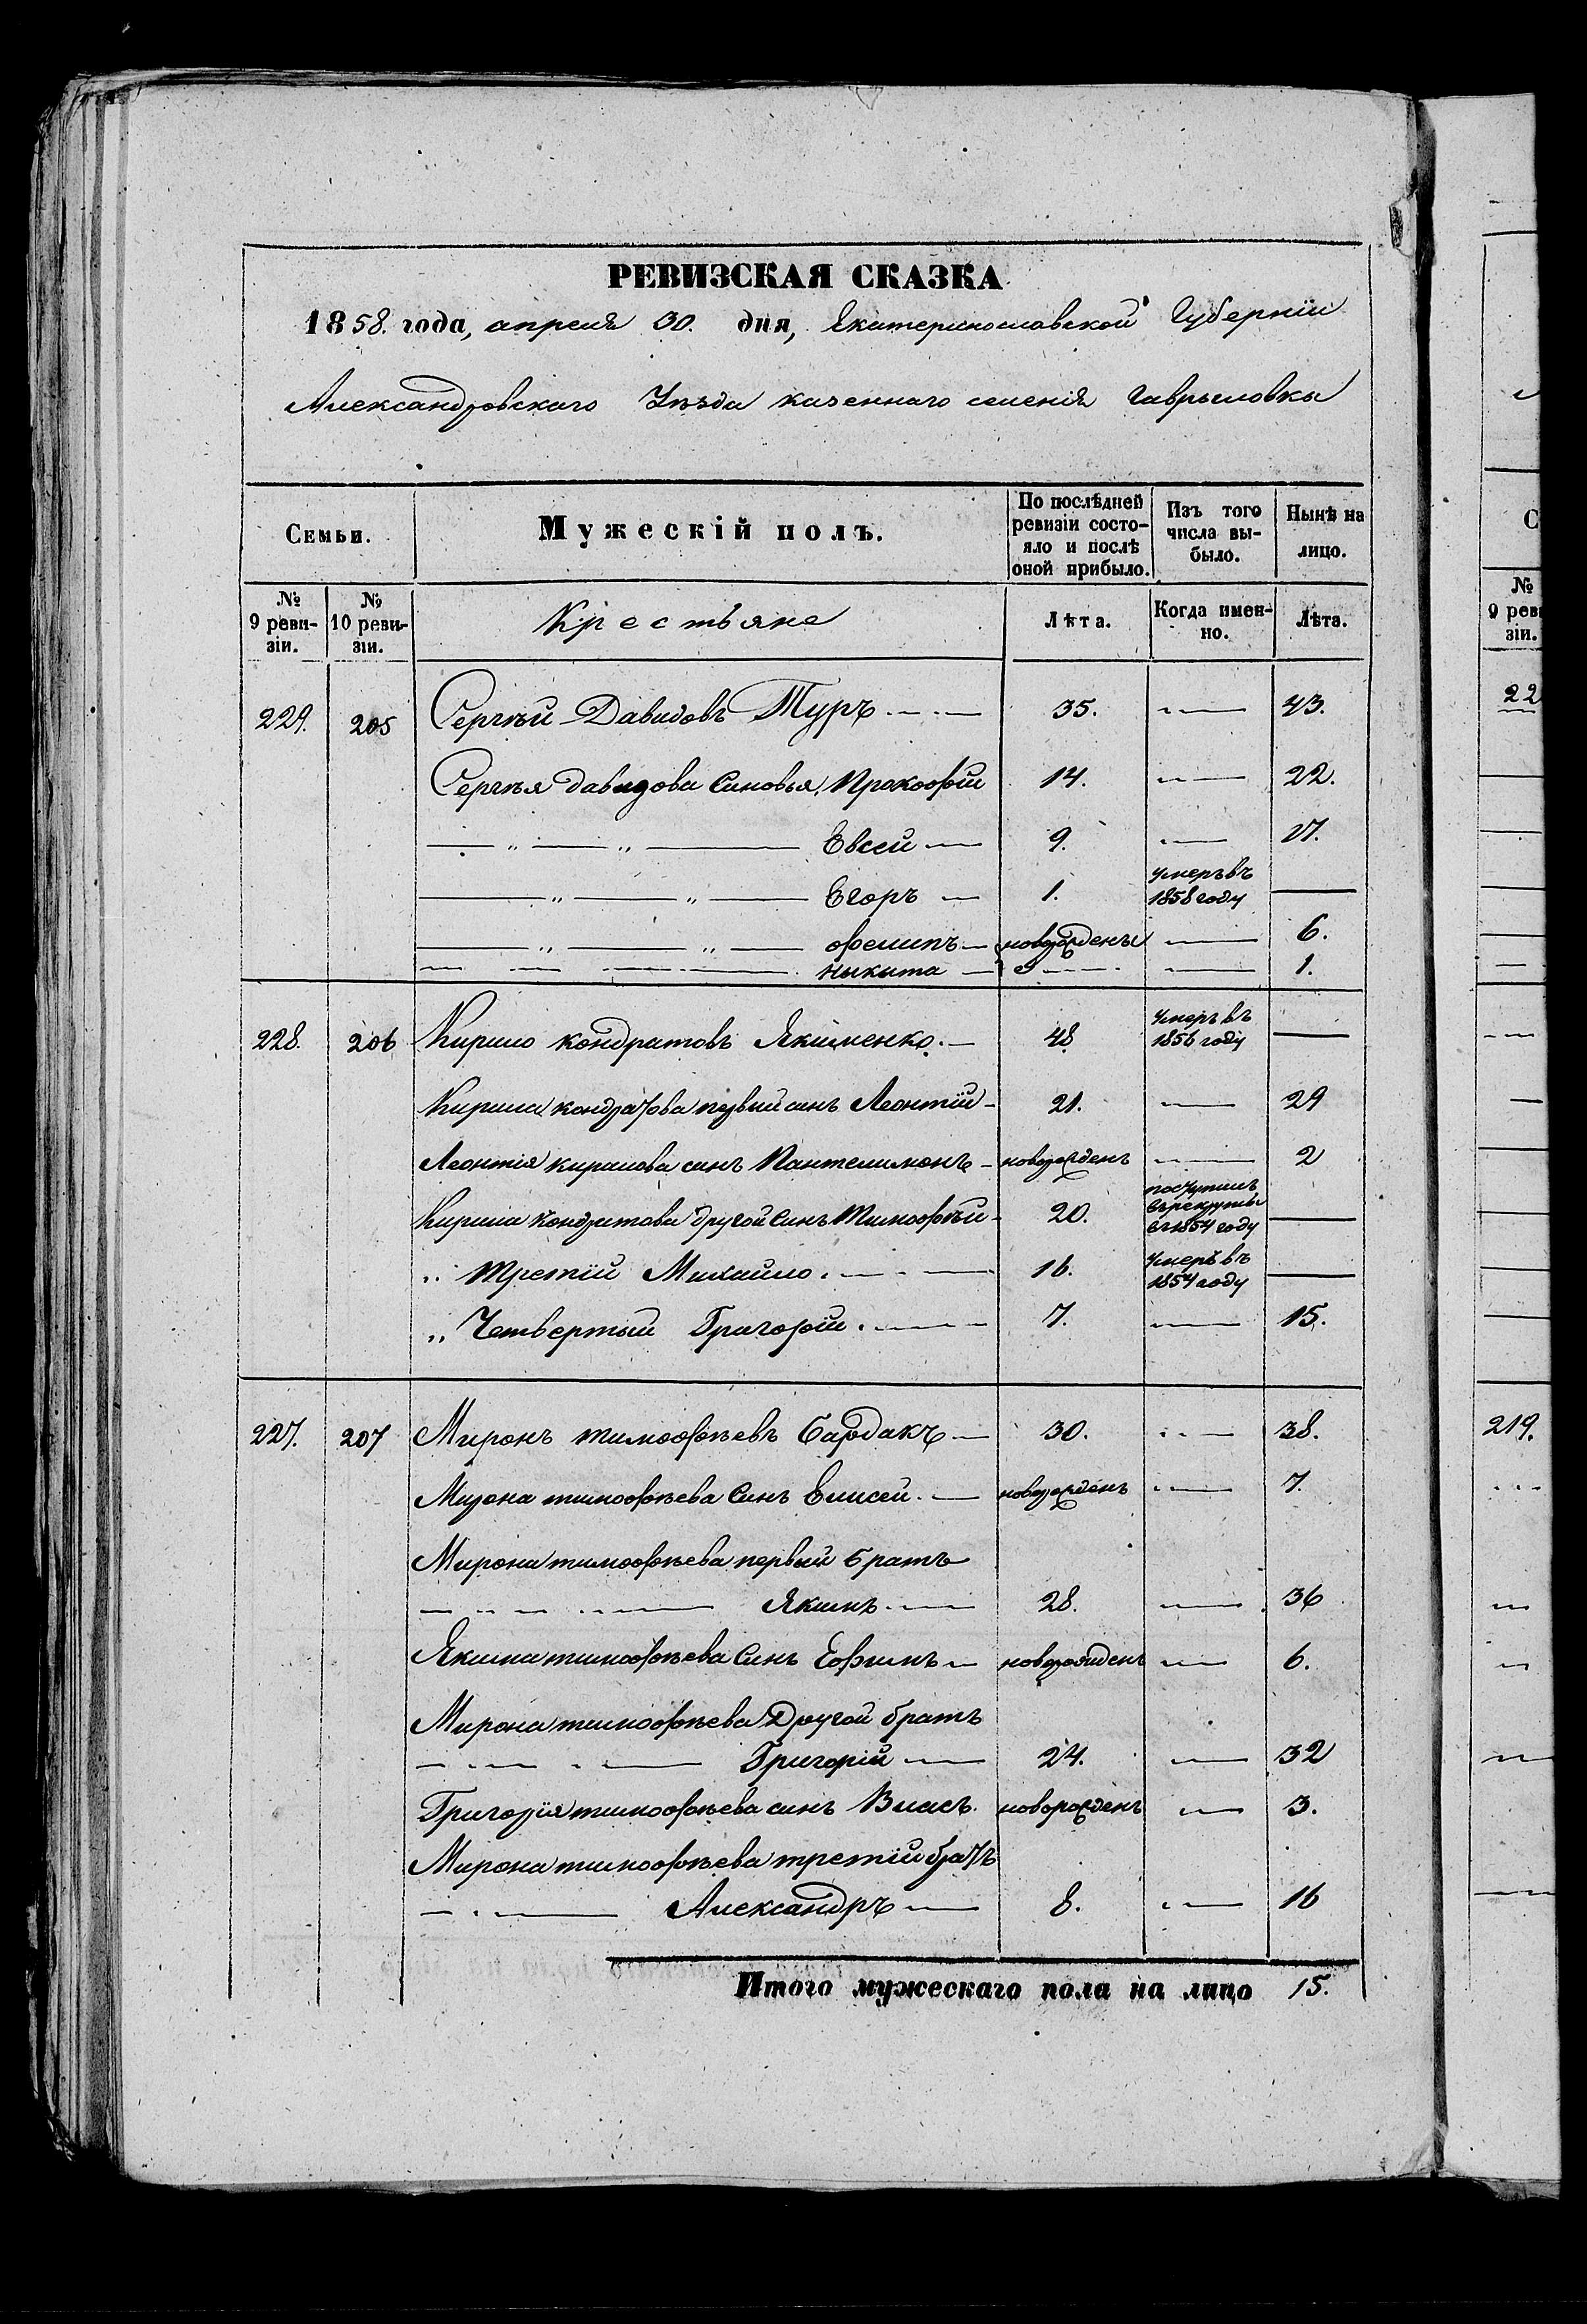 РЕВИЗСКАЯ СКАЗКА
1858. года, апреля 30. дня, Екатеринославской Губерніи
Александровскаго Уѣзда казеннаго селенія Гаврыловкы
Семьи.
Мужескій полъ.
По послѣдней ревизіи состо-яло и послѣ оной прибыло.
Изъ того числа вы-было.
Нынѣ на лицо.
№ 9 реви-зіи.
№ 10 реви-зіи.
Крестьяне
Лѣта.
Когда имен-но.
Лѣта.
229. 205 Сергѣй Давидовъ Туръ 35. — 43.
Сергѣя Давидова Синовья, Прокофій 14. — 22.
— „ — „ — Евсей — 9. — 17.
— „ — „ — Егоръ — 1. умеръ въ 1858 году —
— „ — „ — Фелипъ — новорожденъ — 6.
— — — — Ныкыта — — 1.
228. 206 Кирило Кондратовъ Якименко. — 48. умеръ въ 1856 году —
Кирила Кондратова первый синъ Леонтій — 21. — 29
Леонтія Кирилова синъ Пантелимонъ — новорожденъ — 2
Кирила Кондратова другой Синъ Тимофѣй — 20. поступилъ въ рекруты въ 1854 году —
„ Третій Михайло. — 16. умеръ въ 1854 году —
„ Четвертый Григорій. — 7. — 15.
227. 207 Миронъ Тимофѣевъ Бардакъ — 30. — 38.
Мирона Тимофѣева Синъ Елисей. — новорожденъ — 7.
Мирона Тимофѣева первый братъ
— — — Якимъ — 28. — 36
Якима Тимофѣева Синъ Ефимъ — новорожденъ — 6.
Мирона Тимофѣева Другой братъ
— — — Григорій — 24. — 32
Григорія Тимофѣева синъ Власъ. новорожденъ — 3.
Мирона Тимофѣева третій братъ
— — Александръ — 8. — 16
Итого мужескаго пола на лицо 15.
№
9 рев
зіи.
22
219.